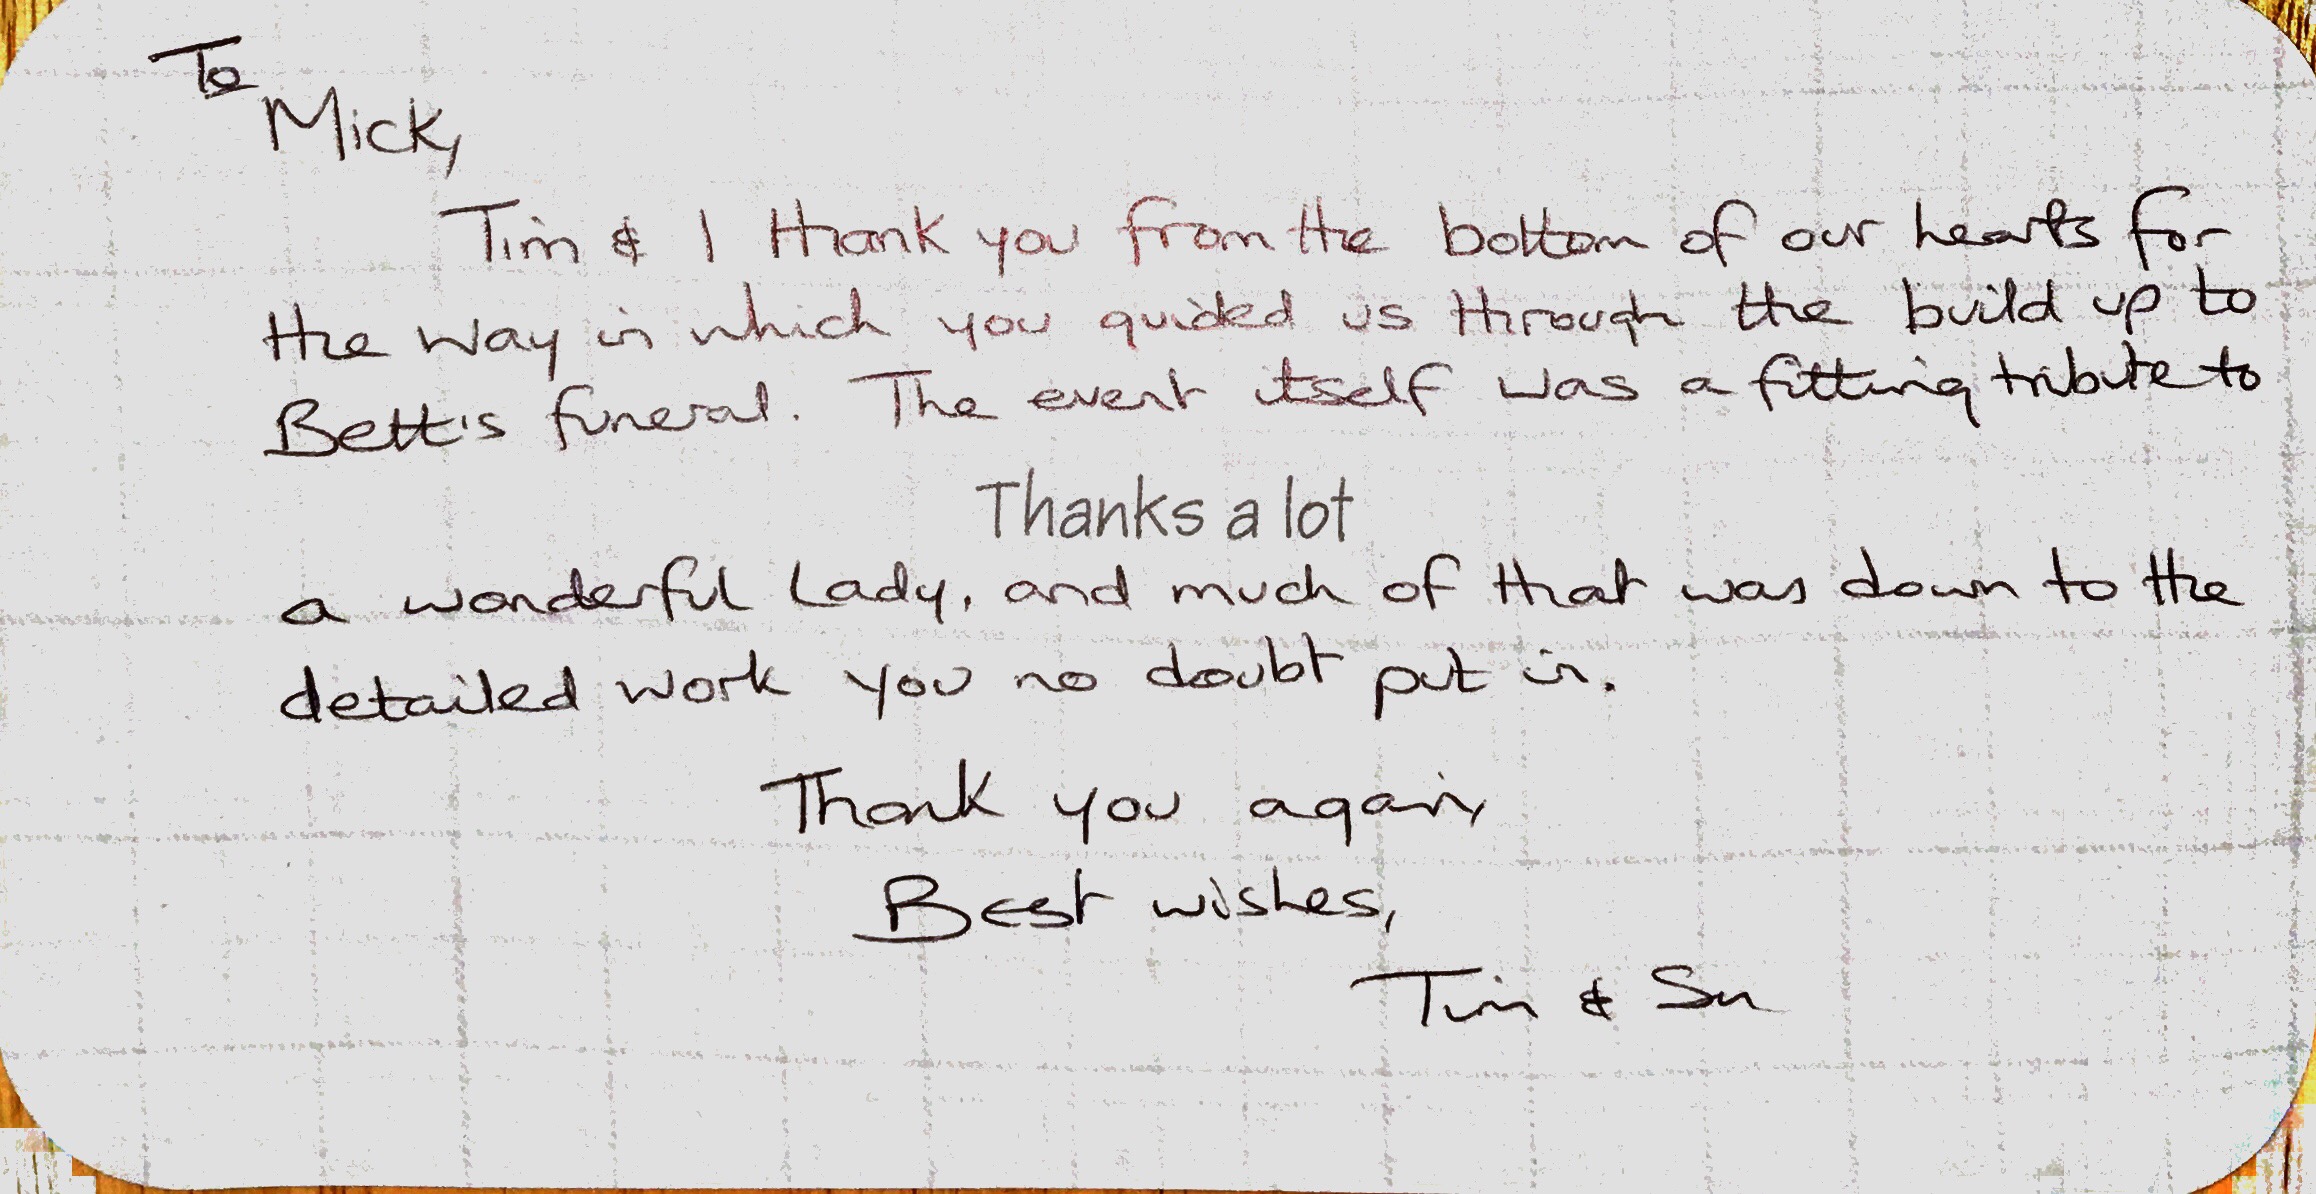 To
Mick,
Tim & I thank you from the bottom of our hearts for
the way in which you guided us through the build up to
Bett's funeral. The event itself was a fitting tribute to
Thanks a lot
a wonderful Lady, and much of that was down to the
detailed work you no doubt put in.
Thank you again,
Best wishes,
Tim & Su